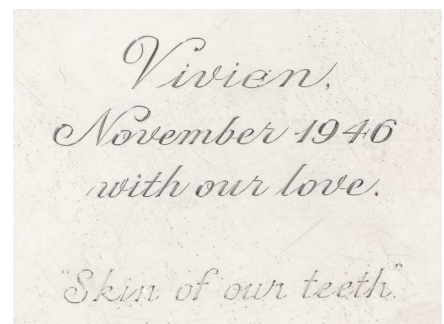 Vivien,
November 1946
with our love.
"Skin of our teeth"